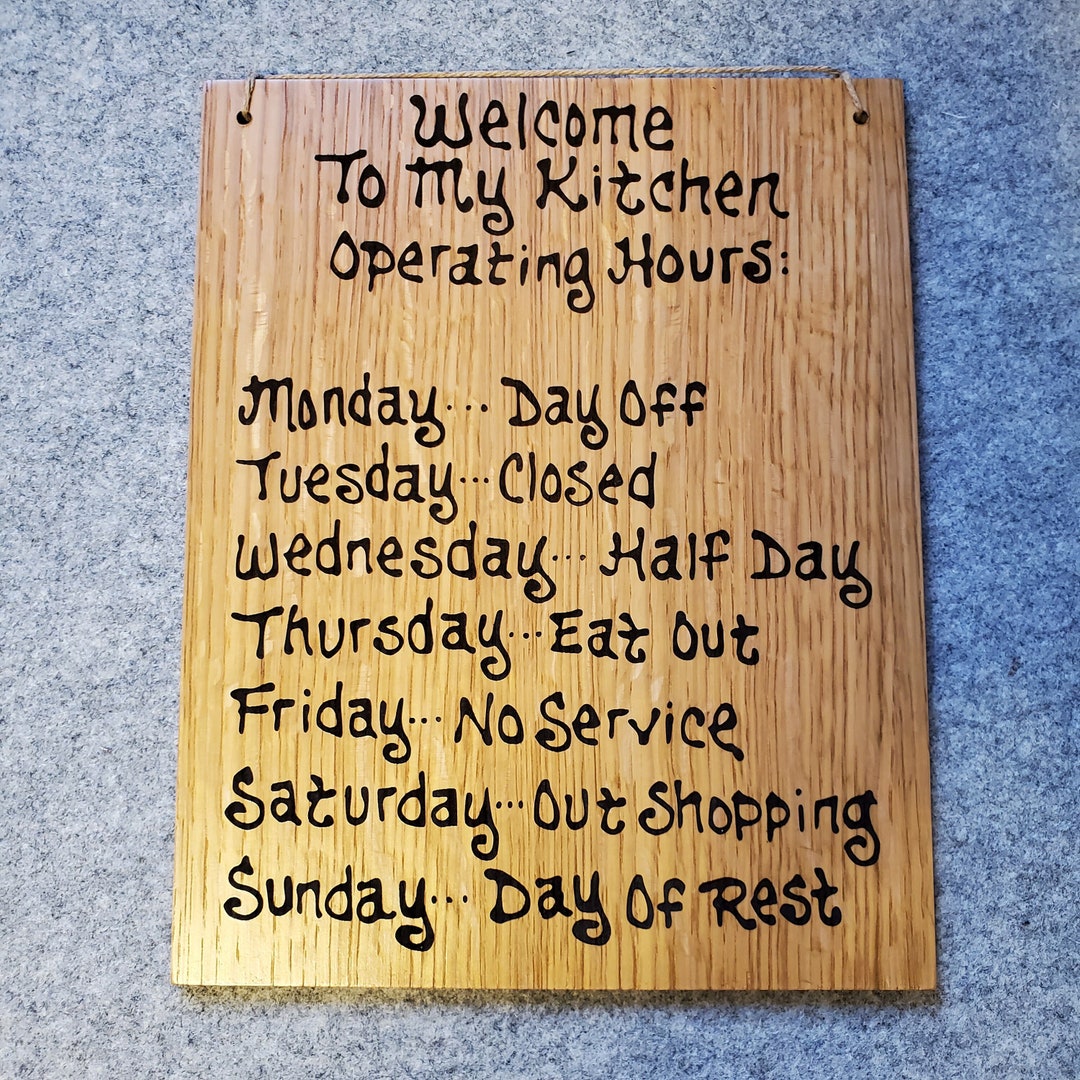 Welcome
To My Kitchen
Operating Hours:
Monday... Day Off
Tuesday... Closed
Wednesday... Half Day
Thursday... Eat Out
Friday... No Service
Saturday... Out Shopping
Sunday... Day Of Rest